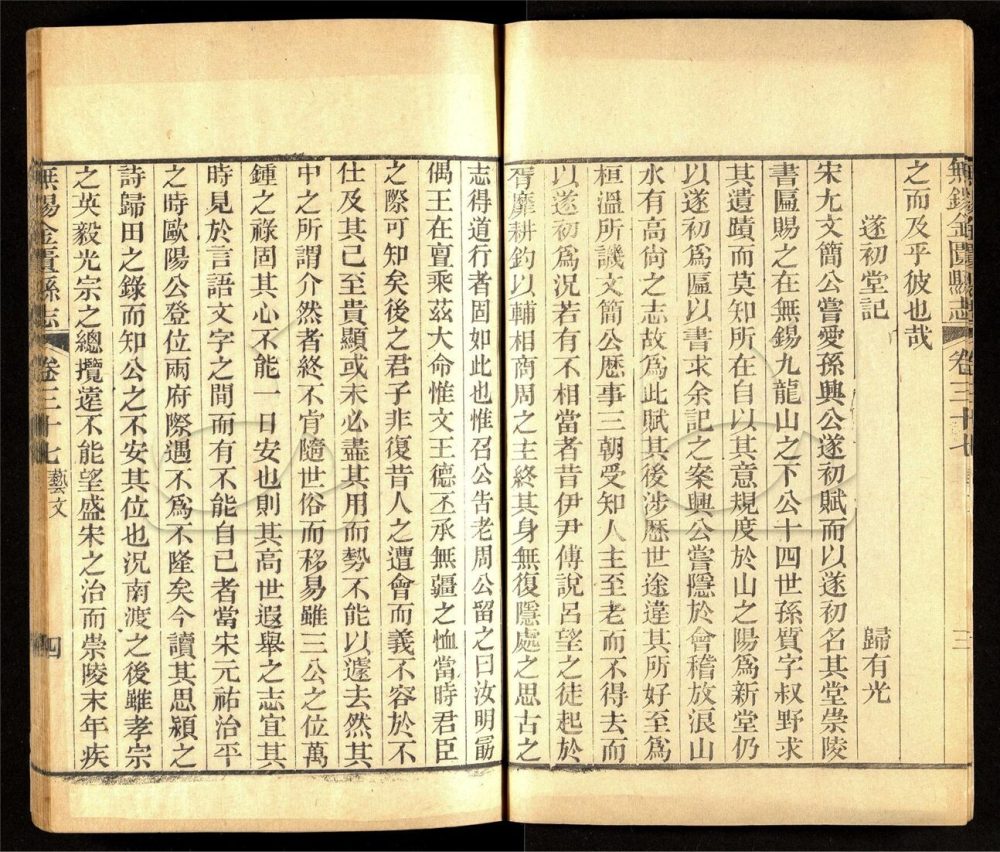 無錫金匱縣志 卷三十七 三
之而及乎彼也哉
遂初堂記 歸有光
宋尤文簡公嘗愛孫興公遂初賦而以遂初名其堂崇陵
書匾賜之在無錫九龍山之下公十四世孫質字叔野求
其遺蹟而莫知所在自以其意規度於山之陽為新堂仍
以遂初為匾以書求余記之案興公嘗隱於會稽放浪山
水有高尚之志故為此賦其後涉歷世途違其所好至為
桓溫所譏文簡公歷事三朝受知人主至老而不得去而
以遂初為況若有不相當者昔伊尹傅說呂望之徒起於
胥靡耕釣以輔相商周之主終其身無復隱處之思古之
志得道行者固如此也惟召公告老周公留之曰汝明勗
偶王在亶乘茲大命惟文王德丕承無疆之恤當時君臣
之際可知矣後之君子非復昔人之遭會而義不容於不
仕及其已至貴顯或未必盡其用而勢不能以遽去然其
中之所謂介然者終不肯隨世俗而移易雖三公之位萬
鍾之祿固其心不能一日安也則其高世遐舉之志宜其
時見於言語文字之間而有不能自已者當宋元祐治平
之時歐陽公登位兩府際遇不為不隆矣今讀其思潁之
詩歸田之錄而知公之不安其位也況南渡之後雖孝宗
之英毅光宗之總攬遠不能望盛宋之治而崇陵末年疾
無錫金匱縣志 卷三十七 藝文 四